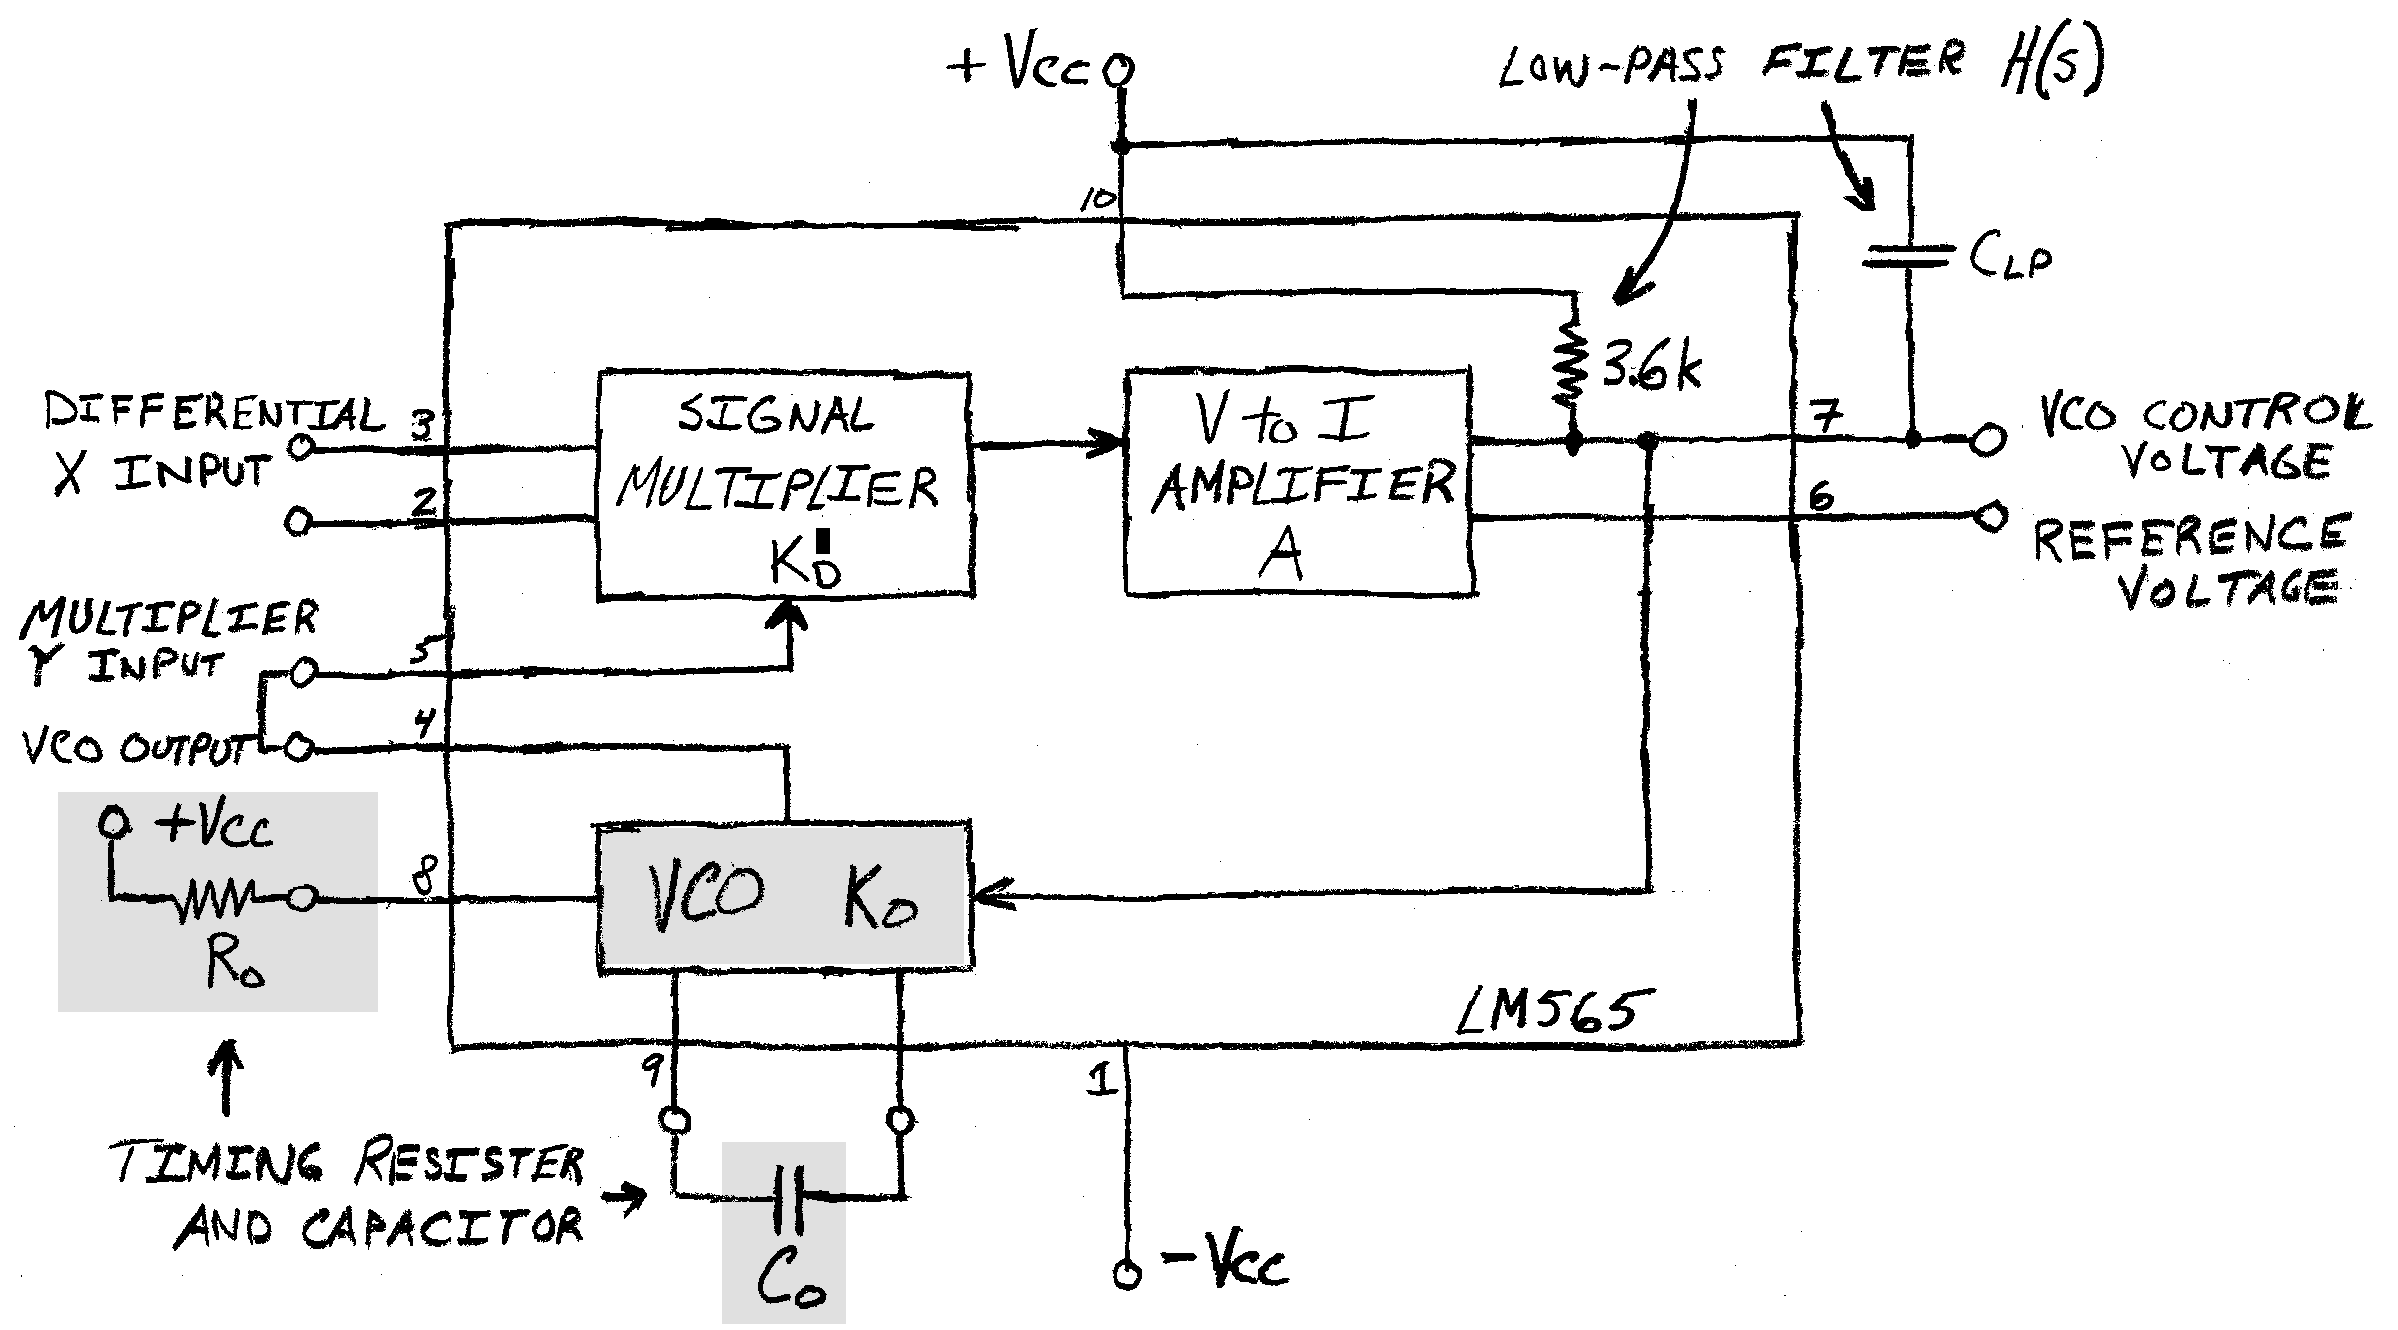 +Vcc
LOW-PASS FILTER H(s)
10
CLP
3.6k
DIFFERENTIAL
X INPUT
3
2
SIGNAL
MULTIPLIER
K'D
V to I
AMPLIFIER
A
7
VCO CONTROL
VOLTAGE
6
REFERENCE
VOLTAGE
MULTIPLIER
Y INPUT
5
4
VCO OUTPUT
+Vcc
8
Ro
VCO Ko
LM565
9
1
TIMING RESISTER
AND CAPACITOR
Co
-Vcc